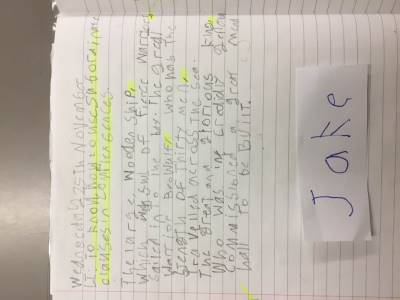 Wednesday 25th November
L.I. to know how to use subordinate
clauses in sentences.
The large wooden ship,
which was full of fierce warriors
sailed into the the great
warrior Beowulf, who has the
strength of thirty men,
travelled across the sea.
The great and glorious King
who was incredibly
commissioned a great mead
hall to be built
Jake